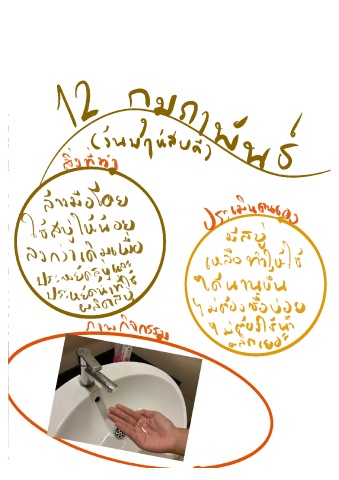 12 กุมภาพันธ์
(วันพฤหัสบดี)
สิ่งที่ทำ
ล้างมือโดย
ใช้สบู่ให้น้อย
ลงกว่าเดิมเพื่อ
ประหยัดสบู่และ
ประหยัดน้ำที่ใช้
ผลิตสบู่
ประเมินตนเอง
มีสบู่
เหลือทำให้ใช้
ได้นานขึ้น
ไม่ต้องซื้อบ่อย
ๆ ไม่ต้องใช้น้ำ
ภาพกิจกรรม